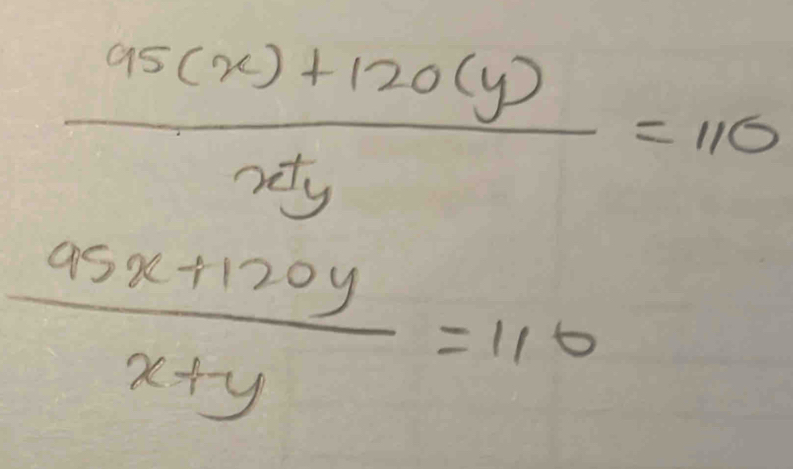 95(x) + 120(y) / x+y = 110
95x + 120y / x+y = 110